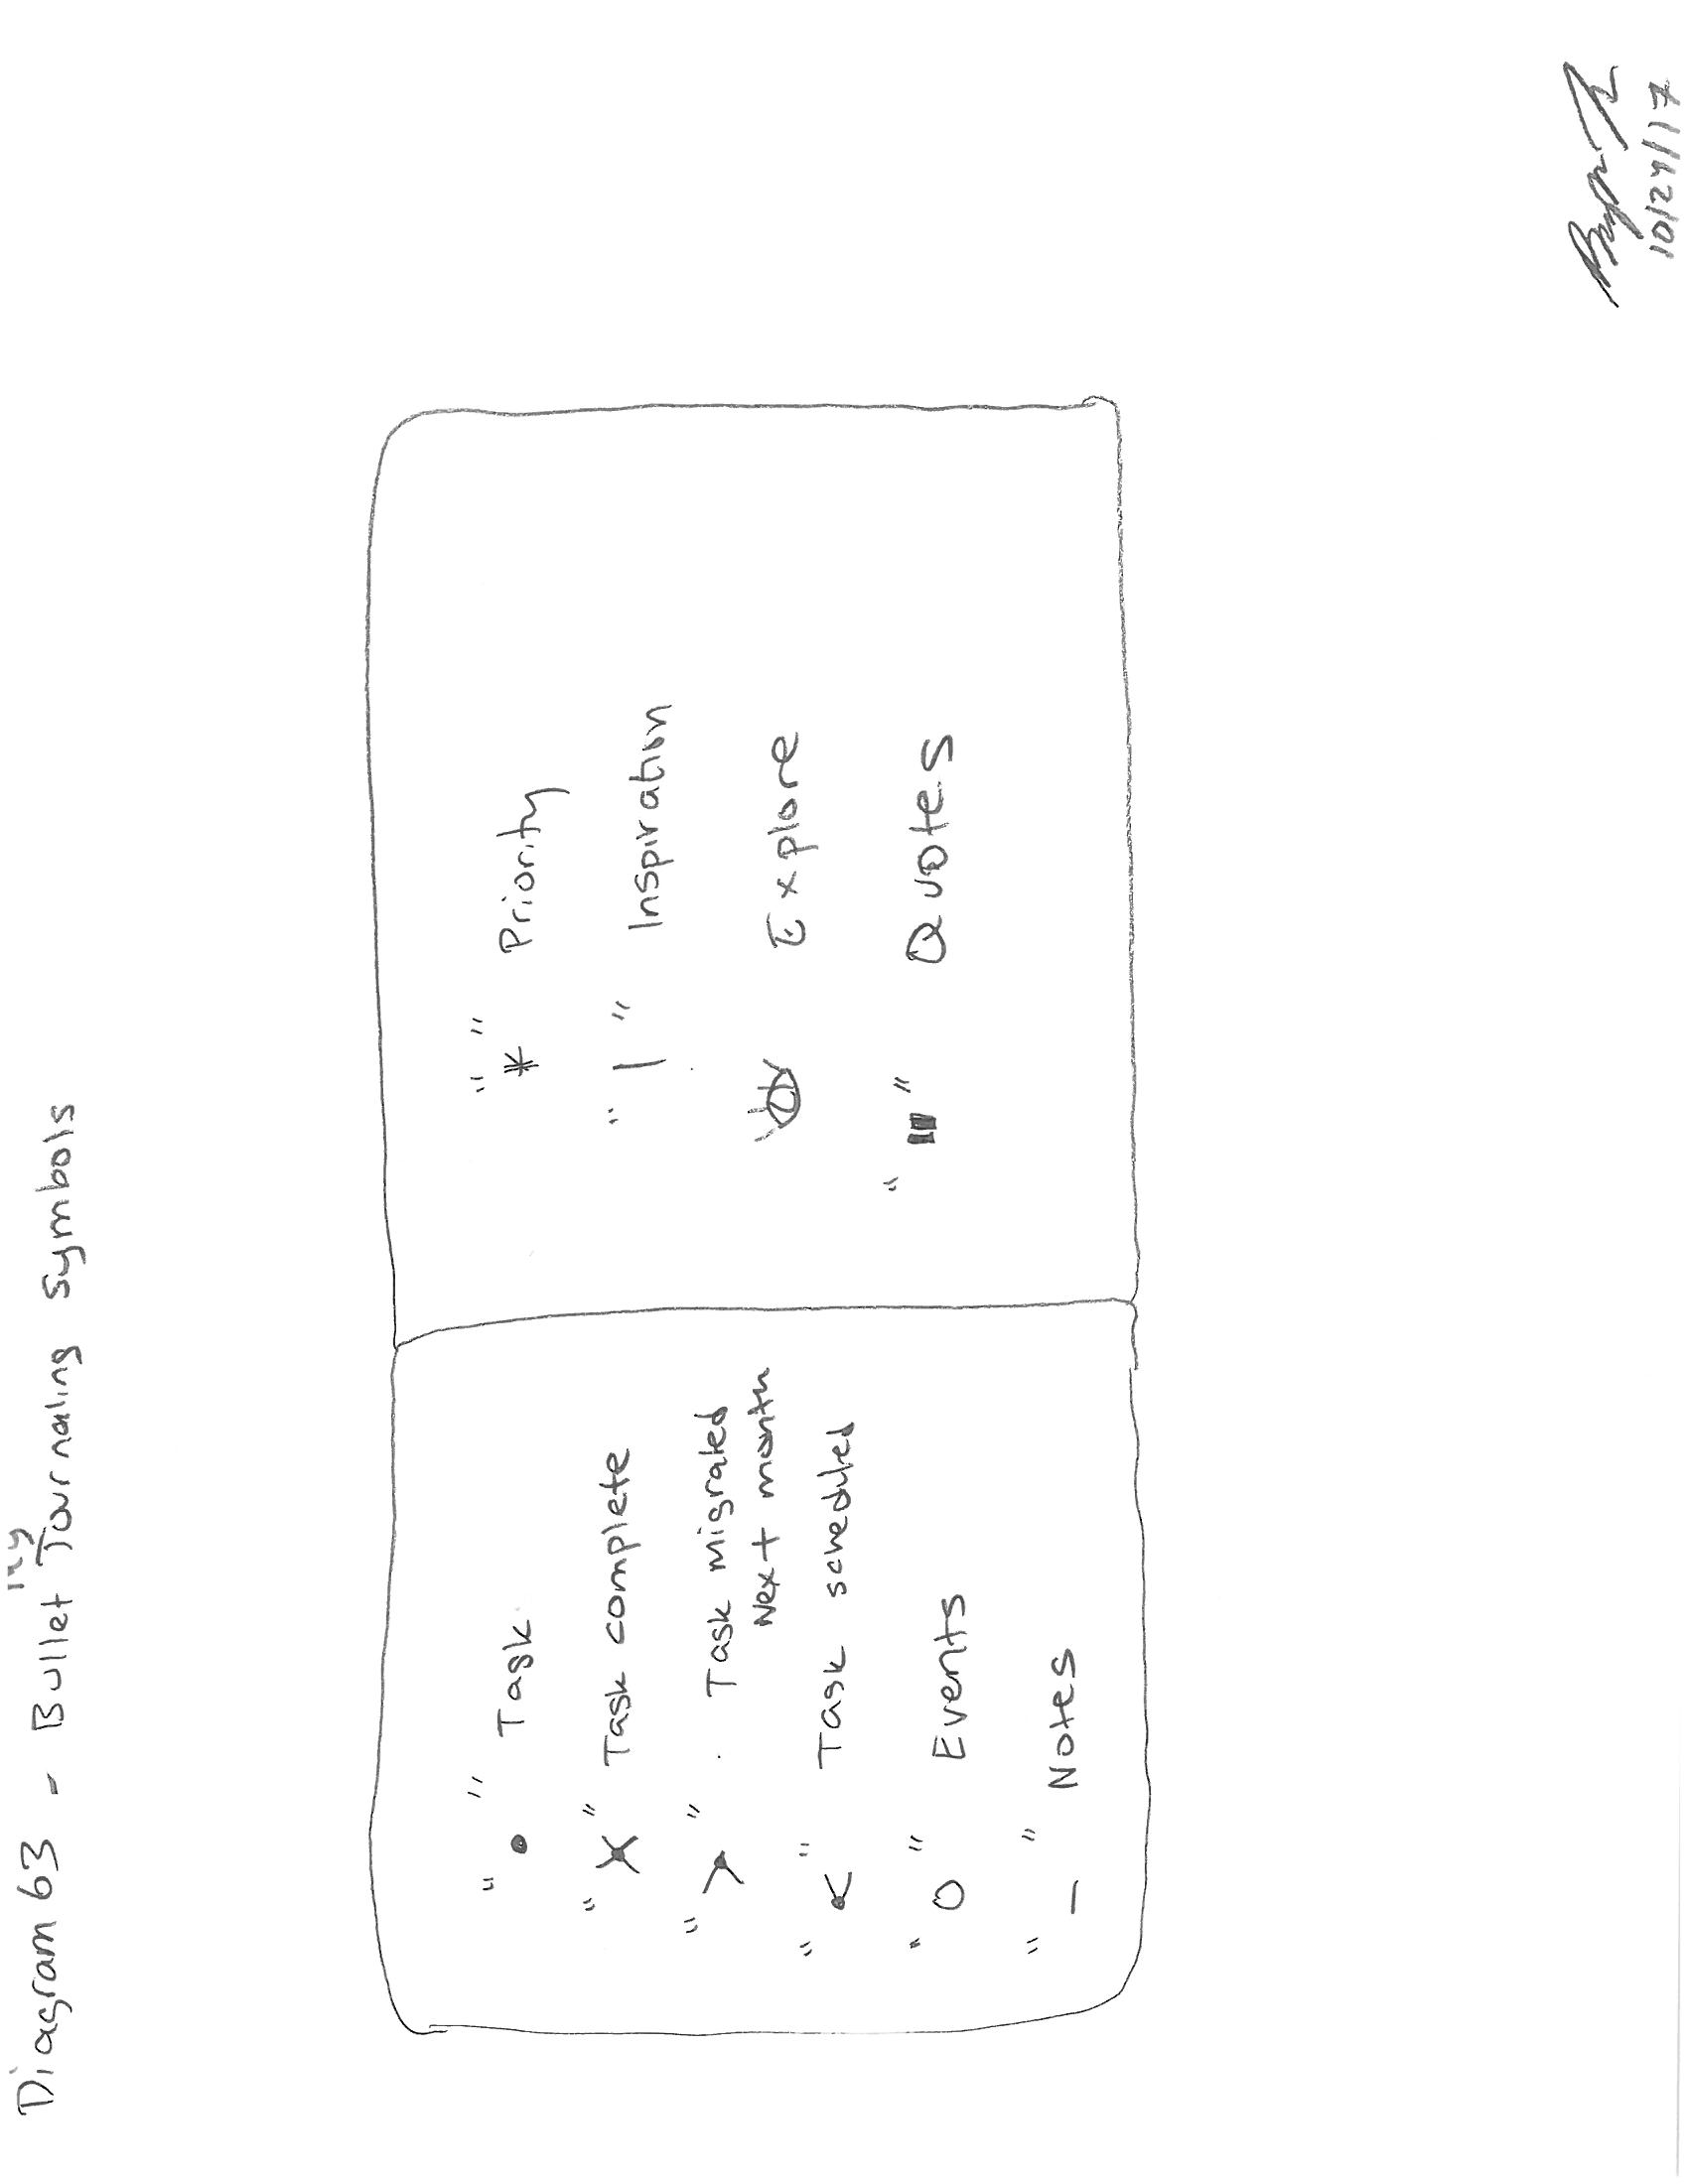 Diagram 63 - Bullet Journaling Symbols
" • " Task
" X " Task complete
" > " Task migrated
Next month
" < " Task scheduled
" O " Events
" – " Notes
" * " Priority
" | " Inspiration
Explore
" " Quotes
10/24/17